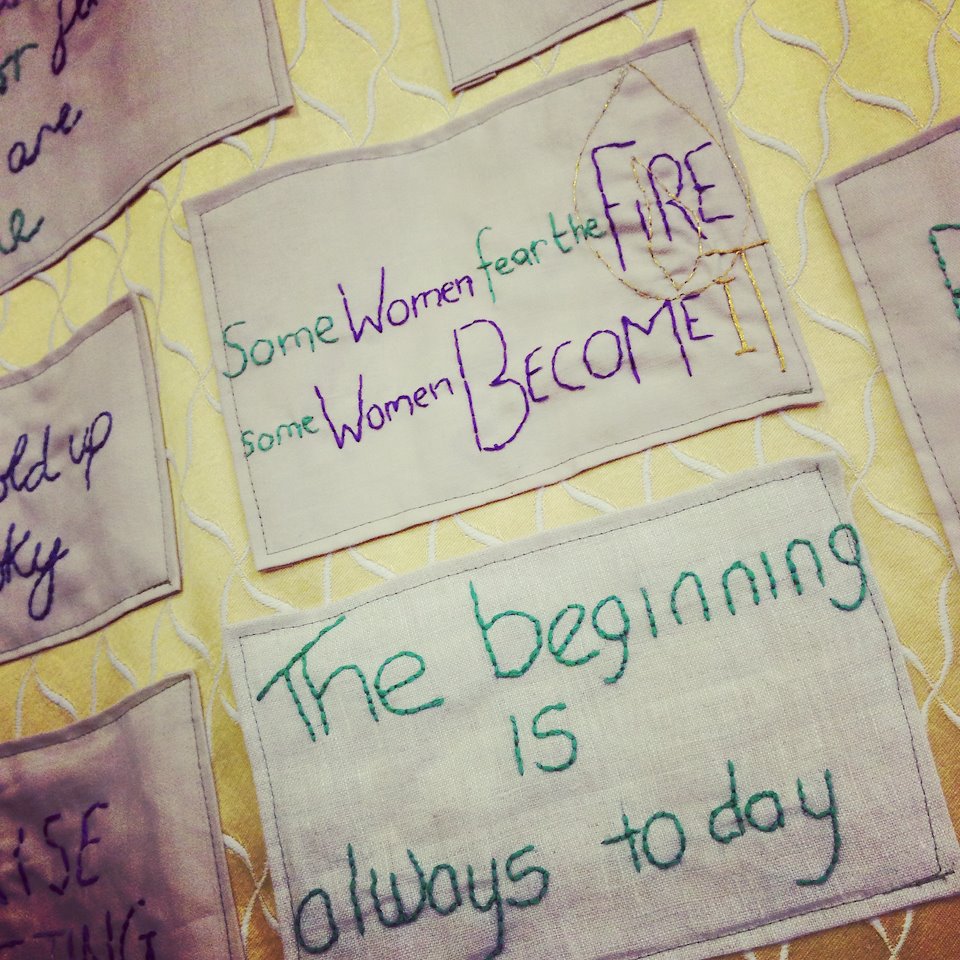 or
are
Some Women fear the FiRE
some Women BECOME IT
old up
ky
The beginning
is
always today
iSE
TING